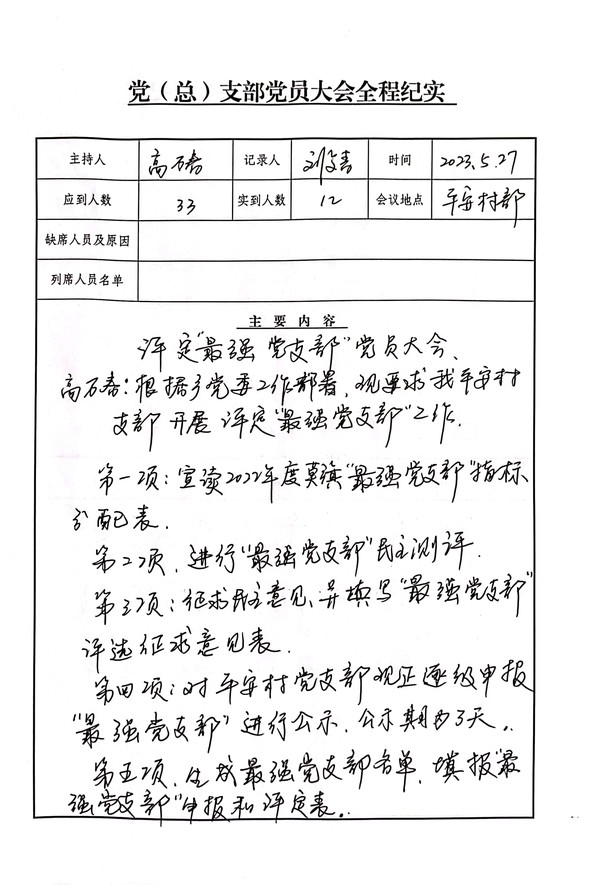 党（总）支部党员大会全程纪实
主持人 高石春 记录人 刘文喜 时间 2023.5.27
应到人数 33 实到人数 12 会议地点 平安村部
缺席人员及原因
列席人员名单
主要内容
评定“最强党支部”党员大会、
高石春：根据乡党委工作部署，现要求我平安村
支部开展评定“最强党支部”工作．
第一项：宣读2022年度莫旗“最强党支部”指标
分配表．
第二项、进行“最强党支部”民主测评．
第三项：征求民主意见、并填写“最强党支部”
评选征求意见表．
第四项：对平安村党支部现正逐级申报
“最强党支部”进行公示、公示期为3天。
第五项、生成最强党支部名单，填报“最
强党支部”申报和评定表。